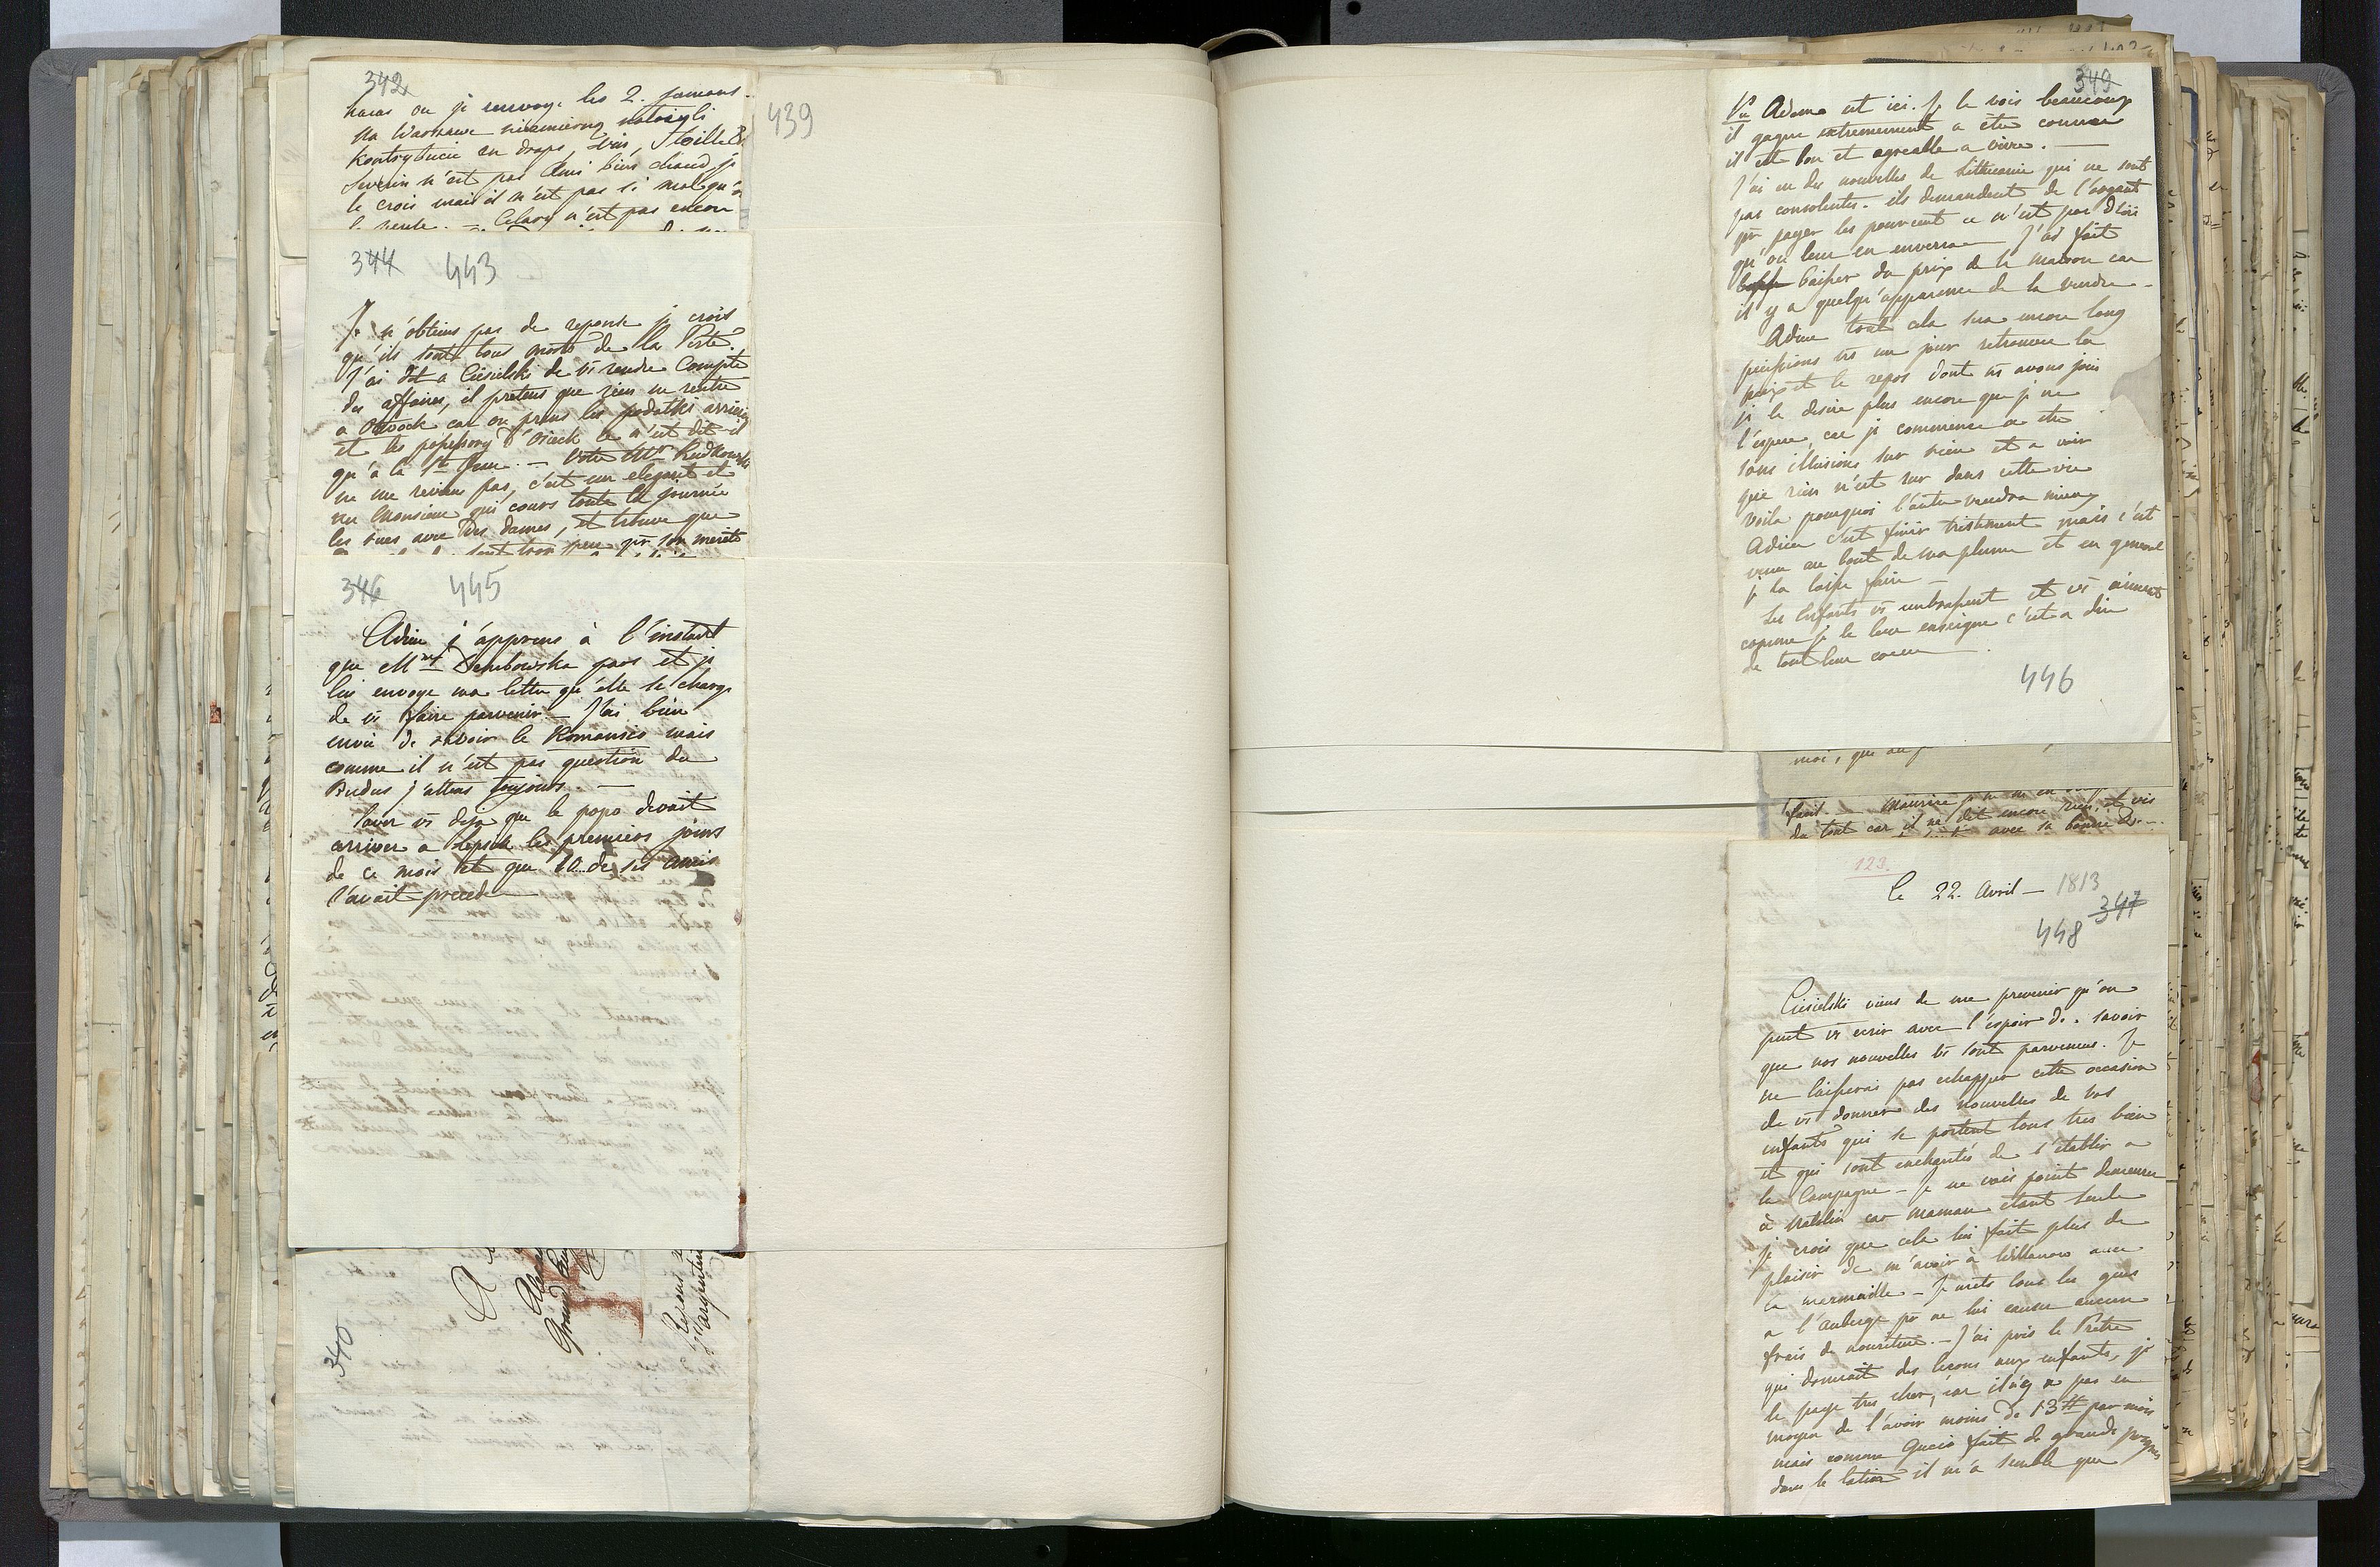 342
haras ou je renvoye les 2. jumens
Na Warszawe niezmierną nałożyli
Kontrybucie en draps, Vin, Toille &
Severin n'est pas Ami bien chaud, je
le crois mais il n'est pas si mal qu'on
n'est pas encore
439
344 443
Je n'obtiens pas de reponse je crois
qu'ils sont tous morts de la Peste.
J'ai dit a Ciesielski de vs rendre Compte
des affaires, il pretens que rien ne rentre
a Otwock car on prens les podatki
et les possessory d'Osieck ce n'est dit-il
qu'à la St Jean. — Votre Mr Rudkowski
ne me reviens pas, c'est un elegant et
un Monsieur qui cours toute la journée
les rues avec des dames, et trouve que
sont trop peu pr son merite
346 445
Adieu j'apprens à l'instant
que Mme Dembowska part et je
lui envoye ma lettre qu'elle se charge
de vs faire parvenir — J'ai bien
envie de ravoir le Romansis mais
comme il n'est pas question du
Budus j'attens toujours. —
Savez vs deja que le popo devait
arriver a Lepsik les premiers jours
de ce mois et que 10. de ses amis
l'avait precedé —
340
349
Pce Adam est ici. Je le vois beaucoup
il gagne extremement a etre connue
il est bon et agreable a vivre. —
J'ai eu des nouvelles de Lithuanie qui ne sont
pas consolentes. ils demandent de l'argent
pr payer les pourcent ce n'est pas d'ici
qu'on leur en enverra — J'ai fait
baisser du prix de la maison car
il y a quelqu'apparence de la vendre —
Adieu tout cela sera encore long
puissions ns un jour retrouver la
paix et le repos dont ns avons joui
je le desire plus encore que je ne
l'espere, car je commence a etre
sans illusions sur rien et a voir
que rien n'est sur dans cette vie
voila pourquoi l'autre vaudra mieux
Adieu c'est finir tristement mais c'est
venu au bout de ma plume et en general
je la laisse faire —
Les Enfants vs embrassent et vs aiment
comme je le leur enseigne c'est a dire
de tout leur coeur —
446
moi, que
fait. — Maurice
du tout car il ne dit encore rien et vis
avec sa bonne
123.
Le 22. Avril — 1813
347
448
Ciesielski viens de me prevenir qu'on
peut vs ecrir avec l'espoir de savoir
que nos nouvelles vs sont parvenues. Je
ne laisserai pas echapper cette occasion
de vs donner des nouvelles de vos
enfants qui se portent tous tres bien
et qui sont enchantés de s'etablir a
la Campagne — Je ne vais point demeurer
à Natolin car Maman etant seule
je crois que cela lui fait plus de
plaisir de m'avoir à Willanow avec
la marmaille — Je mets tous les gens
a l'auberge pr ne lui causer aucun
frais de nouriture. — J'ai pris le Prêtre
qui donnait des leçons aux enfants, je
le paye tres cher, car il n'y a pas eu
moyen de l'avoir moins de 13 # par mois
mais comme Gucio fait de grands progres
dans le latin il m'a semblé que